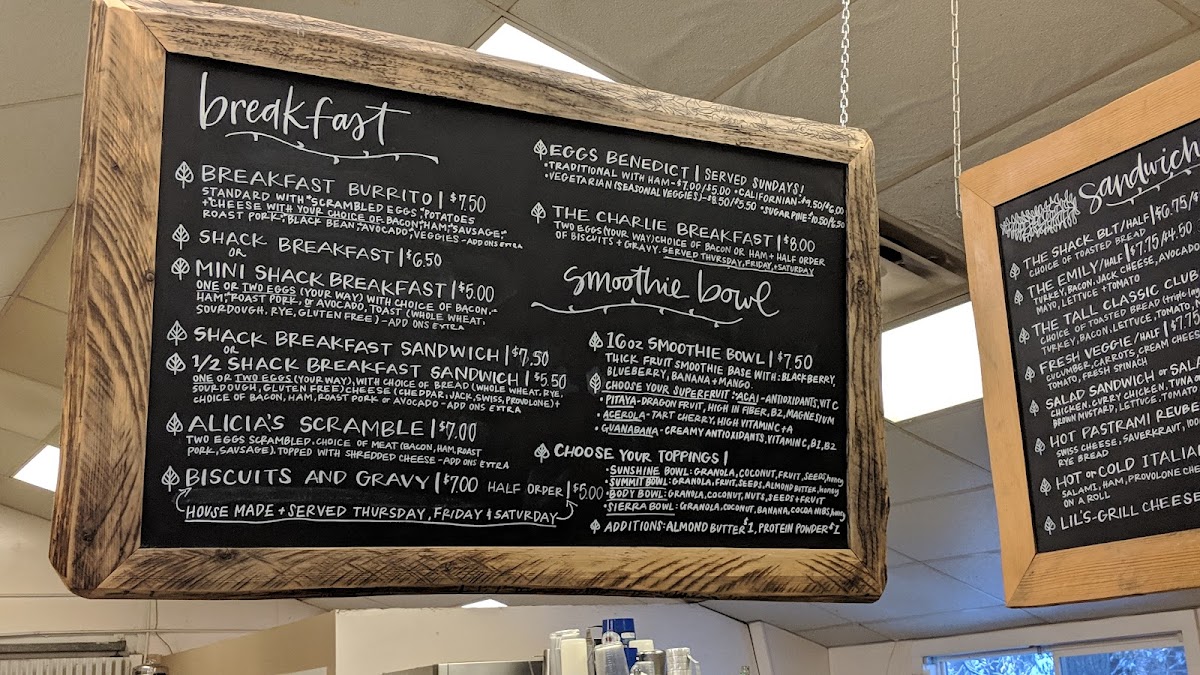 breakfast
BREAKFAST BURRITO | $7.50
STANDARD WITH * SCRAMBLED EGGS * POTATOES
+ CHEESE WITH YOUR CHOICE OF: BACON, HAM, SAUSAGE,
ROAST PORK, BLACK BEAN, AVOCADO, VEGGIES - ADD ONS EXTRA
SHACK BREAKFAST | $6.50
OR
MINI SHACK BREAKFAST | $5.00
ONE OR TWO EGGS (YOUR WAY) WITH CHOICE OF BACON,
HAM, ROAST PORK, OR AVOCADO, TOAST (WHOLE WHEAT,
SOURDOUGH, RYE, GLUTEN FREE) - ADD ONS EXTRA
SHACK BREAKFAST SANDWICH | $7.50
OR
1/2 SHACK BREAKFAST SANDWICH | $5.50
ONE OR TWO EGGS (YOUR WAY), WITH CHOICE OF BREAD (WHOLE WHEAT, RYE,
SOURDOUGH, GLUTEN FREE) CHEESE (CHEDDAR, JACK, SWISS, PROVOLONE) +
CHOICE OF BACON, HAM, ROAST PORK OR AVOCADO - ADD ONS EXTRA
ALICIA'S SCRAMBLE | $7.00
TWO EGGS SCRAMBLED. CHOICE OF MEAT (BACON, HAM, ROAST
PORK, SAUSAGE). TOPPED WITH SHREDDED CHEESE - ADD ONS EXTRA
BISCUITS AND GRAVY | $7.00 HALF ORDER | $5.00
HOUSE MADE + SERVED THURSDAY, FRIDAY & SATURDAY
EGGS BENEDICT | SERVED SUNDAYS!
• TRADITIONAL WITH HAM - $7.00/$5.00 • CALIFORNIAN - $9.50/$6.00
• VEGETARIAN (SEASONAL VEGGIES) - $8.50/$5.50 • SUGARPINE - 10.50/6.50
THE CHARLIE BREAKFAST | $8.00
TWO EGGS (YOUR WAY) CHOICE OF BACON OR HAM + HALF ORDER
OF BISCUITS + GRAVY. SERVED THURSDAY, FRIDAY, + SATURDAY
smoothie bowl
16oz SMOOTHIE BOWL | $7.50
THICK FRUIT SMOOTHIE BASE WITH: BLACKBERRY,
BLUEBERRY, BANANA + MANGO.
CHOOSE YOUR SUPERFRUIT: • ACAI - ANTIOXIDANTS, VIT C
• PITAYA - DRAGON FRUIT, HIGH IN FIBER, B2, MAGNESIUM
• ACEROLA - TART CHERRY, HIGH VITAMIN C + A
• GUANABANA - CREAMY ANTIOXIDANTS, VITAMIN C, B1, B2
CHOOSE YOUR TOPPINGS |
• SUNSHINE BOWL: GRANOLA, COCONUT, FRUIT, SEEDS, honey
• SUMMIT BOWL: GRANOLA, FRUIT, SEEDS, ALMOND BUTTER, honey
• BODY BOWL: GRANOLA, COCONUT, NUTS, SEEDS + FRUIT
• SIERRA BOWL: GRANOLA, COCONUT, BANANA, COCOA NIBS, honey
ADDITIONS: ALMOND BUTTER $1, PROTEIN POWDER $1
Sandwich
THE SHACK BLT/HALF | $6.75/
CHOICE OF TOASTED BREAD
THE EMILY/HALF | $7.75/$4.50
TURKEY, BACON, JACK CHEESE, AVOCADO
MAYO, LETTUCE + TOMATO
THE TALL CLASSIC CLUB
CHOICE OF TOASTED BREAD
TURKEY, BACON, LETTUCE, TOMATO,
FRESH VEGGIE/HALF | $7.75
CUCUMBER, CARROTS, CREAM CHEESE
TOMATO, FRESH SPINACH
SALAD SANDWICH or SALA
CHICKEN, CURRY CHICKEN, TUNA
BROWN MUSTARD, LETTUCE, TOMATO
HOT PASTRAMI REUBE
SWISS CHEESE, SAVERKRAUT, 100
RYE BREAD
HOT or COLD ITALIA
SALAMI, HAM, PROVOLONE CHE
ON A ROLL
LIL'S-GRILL CHEESE